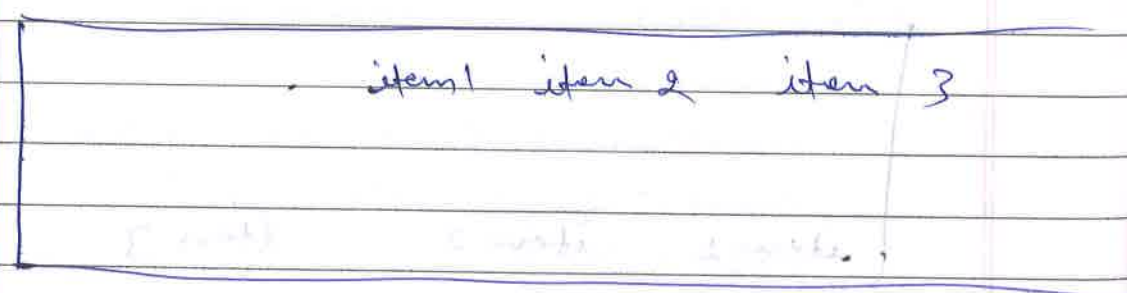 item1 item 2 item 3